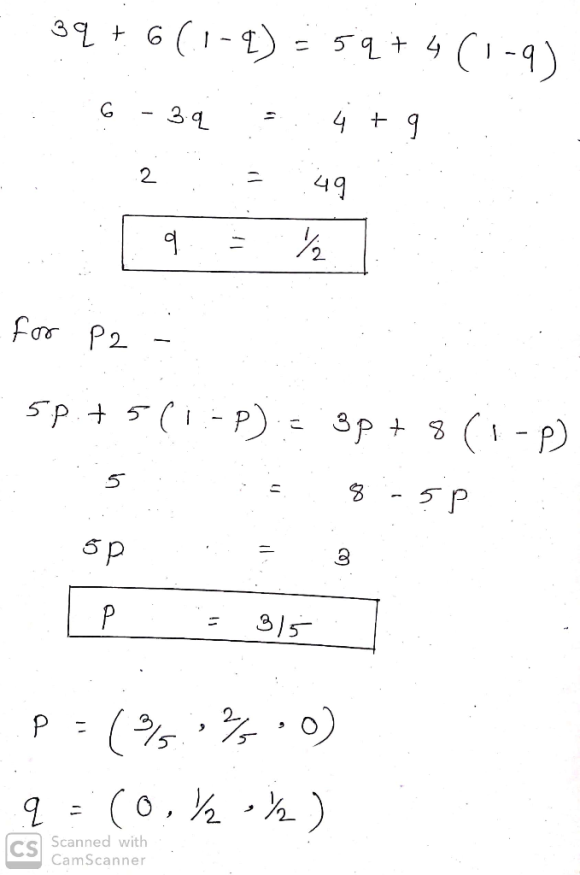 3q + 6 (1-q) = 5q + 4 (1-q)
6 - 3q = 4 + q
2 = 4q
q = 1/2
for P2 -
5p + 5 (1-P) = 3p + 8 (1-p)
5 = 8 - 5p
5p = 3
P = 3/5
P = (3/5, 2/5, 0)
q = (0, 1/2, 1/2)
CS Scanned with
CamScanner